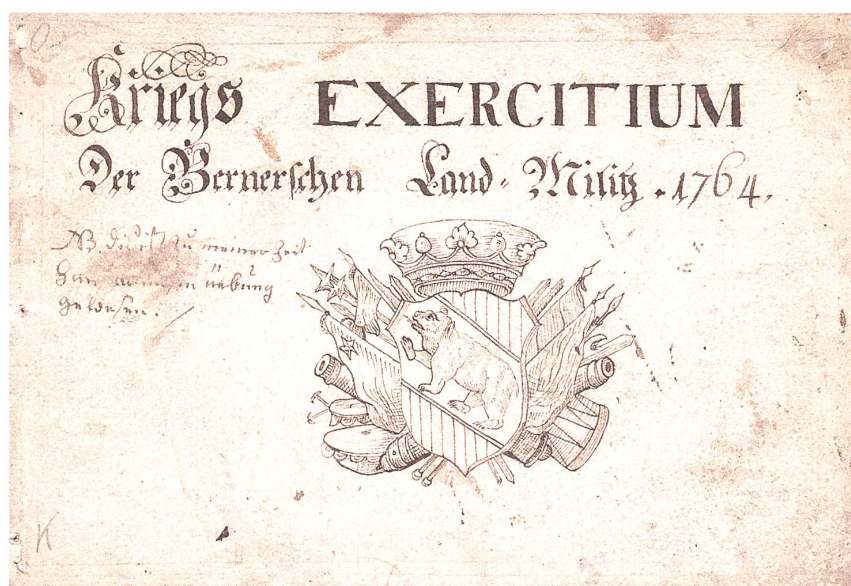 Kriegs EXERCITIUM
Der Bernerschen Land-Militz. 1764.
NB. diß ist zu meiner Zeit
in übung
gewesen.
K